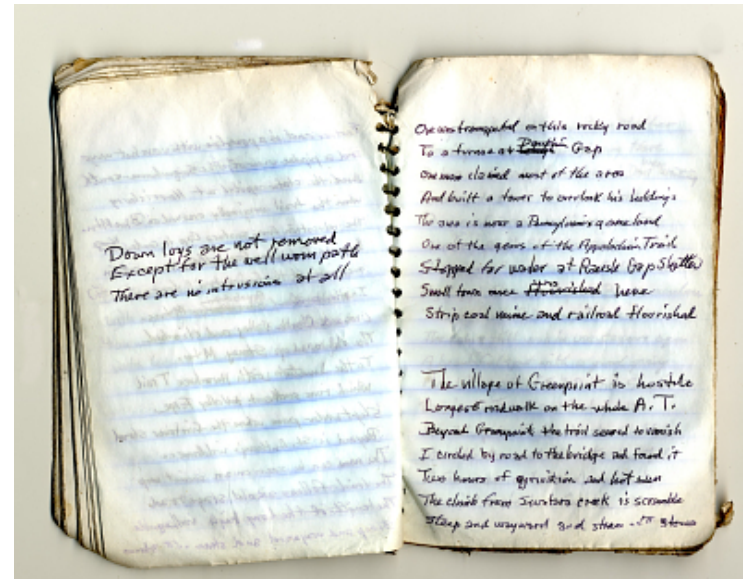 Down logs are not removed
Except for the well worn path
There are no intrusions at all
Ore was transported on this rocky road
To a furnace at Gap
One man claimed most of the area
And built a tower to overlook his holdings
The area is now a Pennsylvania gameland
One of the gems of the Appalachian Trail
Stopped for water at Rausch Gap Shelter
Small town once here
Strip coal mine and railroad flourished
The village of Greenpoint is hostile
Longest roadwalk on the whole A.T.
Beyond Greenpoint the trail seemed to vanish
I circled by road to the bridge and found it
Two hours of and hot sun
The climb from Swatara creek is scramble
Steep and wayward and stones